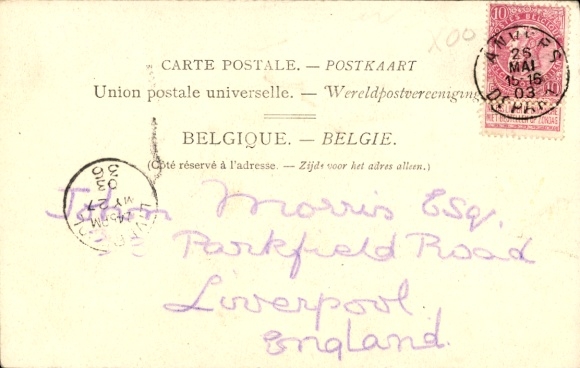 x00
10 10
POSTES BELGIQUE
ANVERS
26
MAI
15-16
03
DEPART
CARTE POSTALE. — POSTKAART
Union postale universelle. — Wereldpostvereeniging
BELGIQUE. — BELGIE.
(Côté réservé à l'adresse. — Zijde voor het adres alleen.)
LIVERPOOL
MY 27
03
John Morris Esq.
Parkfield Road
Liverpool
England.